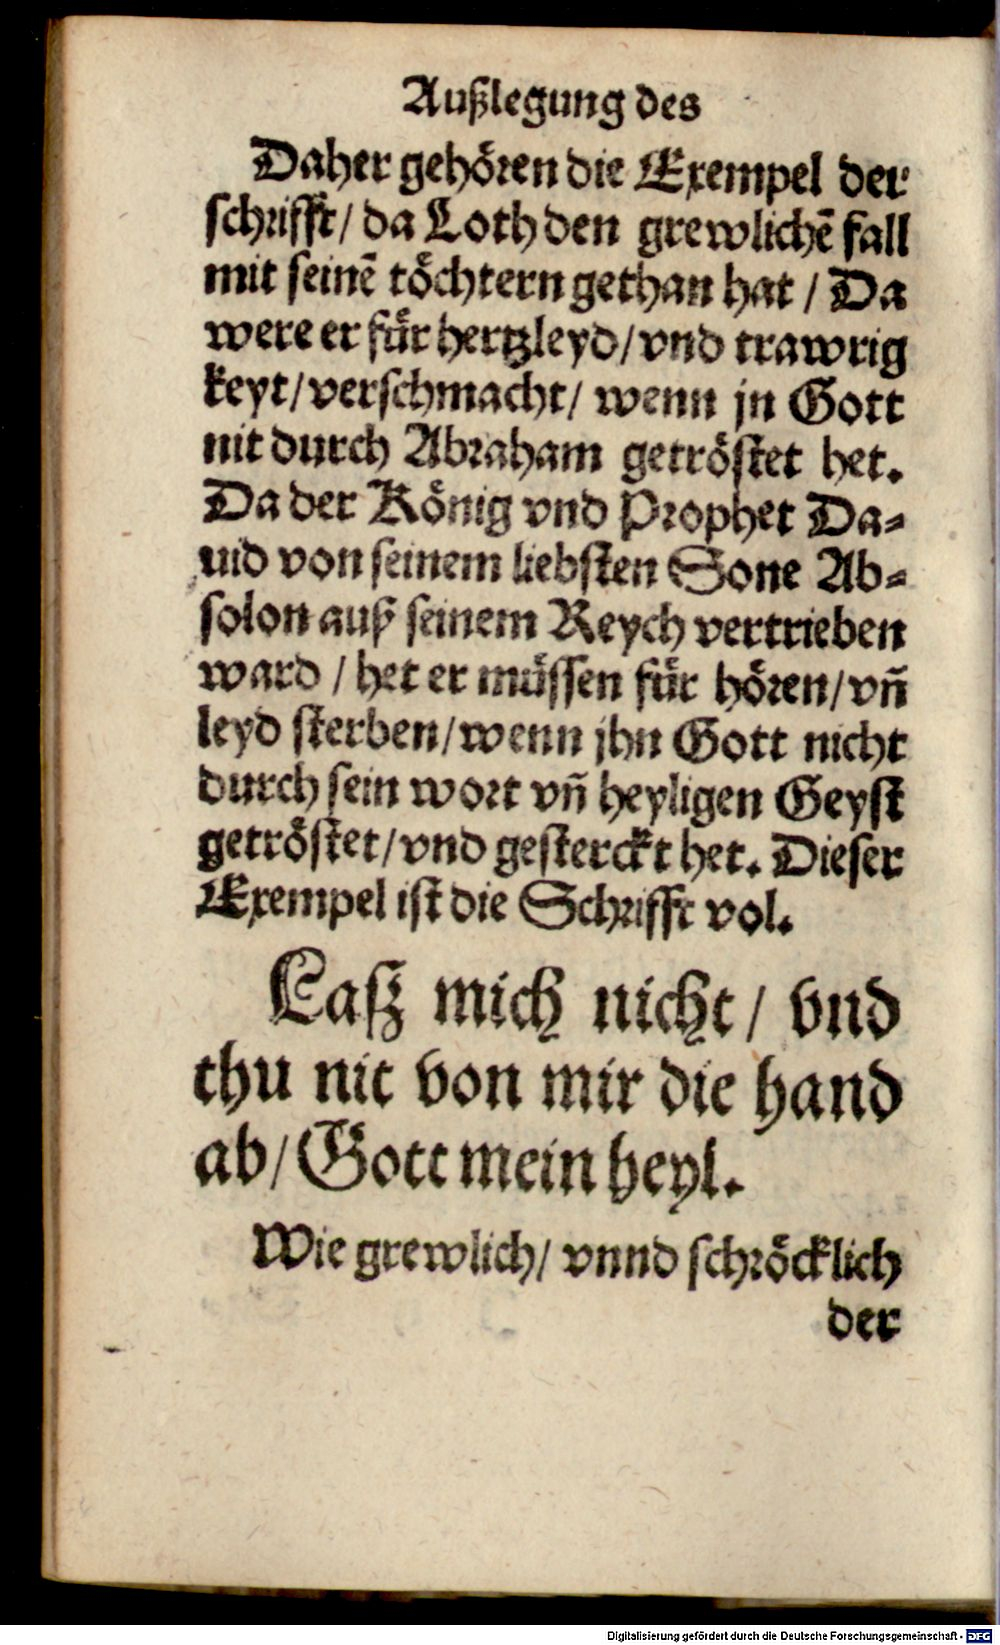 Außlegung des
Daher gehören die Exempel der
schrifft/ da Loth den grewlichē fall
mit seinē töchtern gethan hat / Da
were er für hertzleyd/ vnd trawrig
keyt/ verschmacht/ wenn jn Gott
nit durch Abraham getröstet het.
Da der König vnd Prophet Da-
uid von seinem liebsten Sone Ab-
solon auß seinem Reych vertrieben
ward / het er müssen für hören/ vñ
leyd sterben/ wenn jhn Gott nicht
durch sein wort vñ heyligen Geyst
getröstet/ vnd gesterckt het. Dieser
Exempel ist die Schrifft vol.
Laß mich nicht/ vnd
thu nit von mir die hand
ab/ Gott mein heyl.
Wie grewlich/ vnnd schröcklich
der
Digitalisierung gefördert durch die Deutsche Forschungsgemeinschaft - DFG